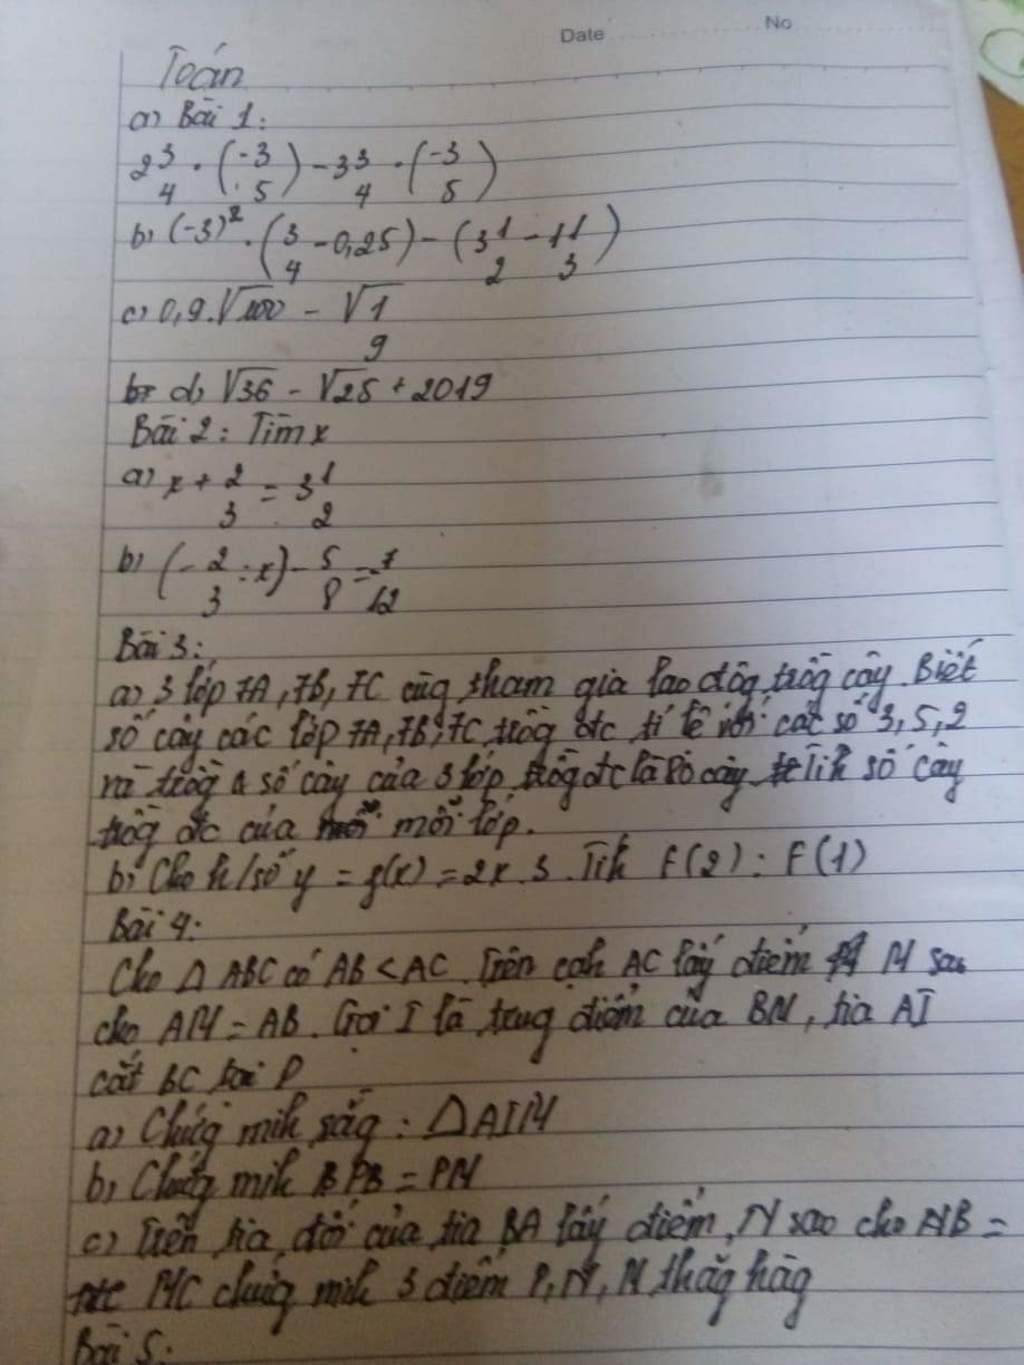 Date No
Toán
a) Bài 1:
2 3/4 . (-3/5) - 3 3/4 . (-3/5)
b) (-3)² . (3/4 - 0,25) - (3 1/2 - 1 1/3)
c) 0,9.√100 - √1/9
d) √36 - √25 + 2019
Bài 2: Tìm x
a) x + 2/3 = 3 1/2
b) (-2/3 : x) - 5/8 = -7/12
Bài 3:
a) 3 lớp 7A, 7B, 7C cùg tham gia lao độg trồg cây. Biết
số cây các lớp 7A, 7B, 7C trồg đc tỉ lệ với các số 3, 5, 2
số cây của 3 lớp trồg đc là cây Tíh số cây
trồg đc của mỗi lớp.
b) Cho h/số y = f(x) = 2x.3. Tíh F(2) ; F(1)
Bài 4:
Cho △ ABC có AB < AC. Trên cạh AC lấy điểm M sao
cho AM = AB. Gọi I là trug điểm của BM, tia AI
cắt BC tại P
a) Chứg mih rằg: △AIM
b) Chứg mih PB = PM
c) Trên tia đối của tia BA lấy điểm N sao cho NB =
MC chứg mih 3 điểm P, N, M thẳg hàg
Bài 5: